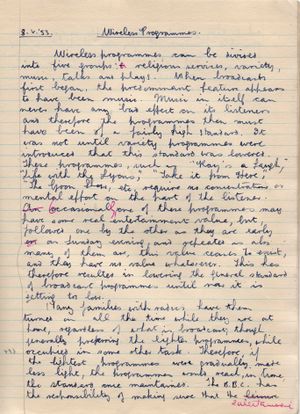 8.V.'53. Wireless Programmes.
Wireless programmes can be divided
into five groups: religious services, variety,
music, talks and plays. When broadcasts
first began, the predominant feature appears
to have been music. Music in itself can
never have any bad effect on its listeners
and therefore the programmes then must
have been of a fairly high standard. It
was not until variety programmes were
introduced that this standard was lowered.
These programmes, such as "Ray's a Laugh",
"Life with the Lyons", "Take it from Here",
"The Goon Show, etc, require no concentration or
mental effort on the part of the listener.
occasionally one of these programmes may
have some real entertainment value, but
followed one by the other as they are early
on Sunday evening and repeated as also
many of them are, this value ceases to exist,
and they have no value whatsoever. This has
therefore resulted in lowering the general standard
of broadcast programmes until now it is
getting to low.
Many families with radios have them
turned on all the time while they are at
home, regardless of what is broadcast, though
generally preferring the lighter programmes, while
occupied in some other task. Therefore, if
the lightest programmes were gradually made
less light, the programmes would reach in time
the standard once maintained. The B.B.C. has
the responsibility of making sure that the leisure